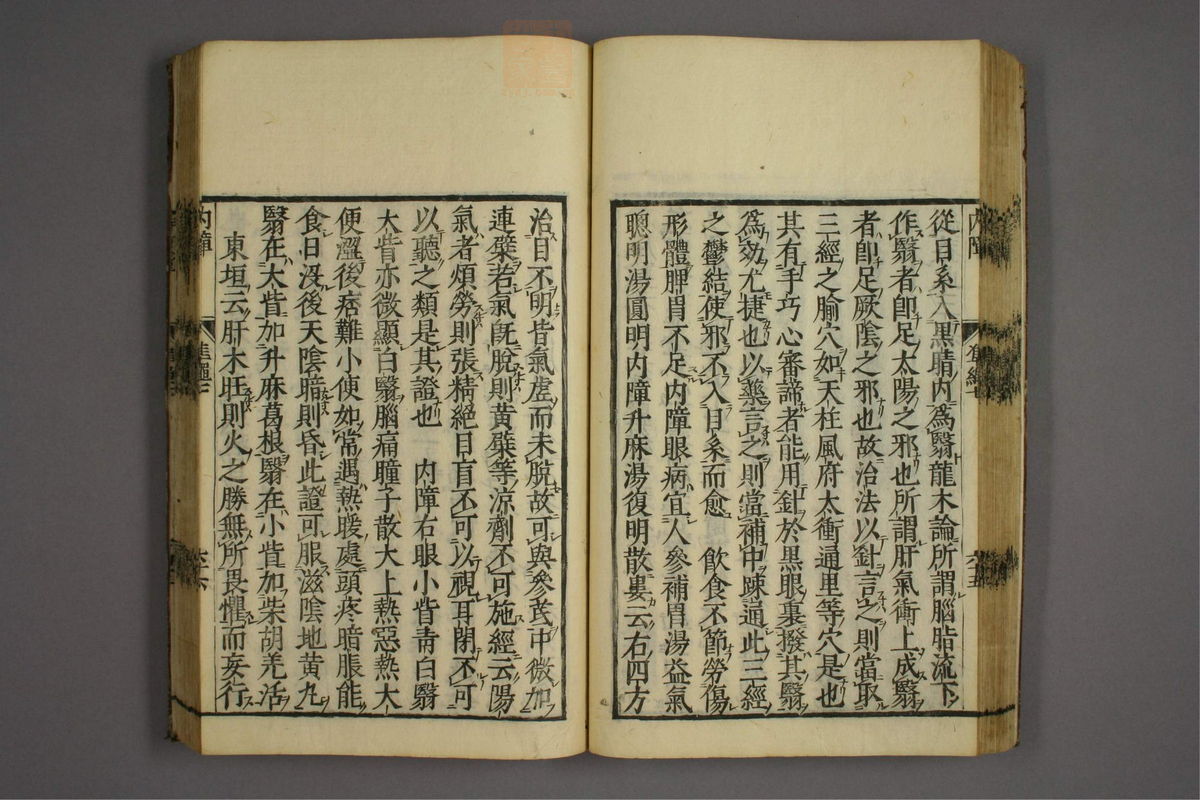 從目系入黒睛内爲翳龍木論所謂腦脂流下
作翳者卽足太陽之邪也所謂肝氣衝上成翳
者卽足厥陰之邪也故治法以針言之則當取
三經之腧穴如天柱風府太衝通里等穴是也
其有手巧心審諦者能用針於黒眼裏撥其翳
爲効尤捷也以藥言之則當補中踈通此三經
之鬱結使邪不入目系而愈 飲食不節勞傷
形體脾胃不足内障眼病宜人參補胃湯益氣
聰明湯圓明内障升麻湯復明散婁云右四方
治目不明皆氣虗而未脫故可與參芪中微加
連蘗若氣旣脫則黄蘗等凉劑不可施經云陽
氣者煩勞則張精絕目盲不可以視耳閉不可
以聽之類是其證也 内障右眼小眥青白翳
太眥亦微顯白翳腦痛瞳子散大上熱惡熱大
便澀後痞難小便如常遇熱暖處頭疼暗脹能
食日没後天陰暗則昏此證可服滋陰地黄九
翳在太眥加升麻葛根翳在小眥加柴胡羗活
東垣云肝木旺則火之勝無所畏懼而妄行
内障
六十五
内障
六十六